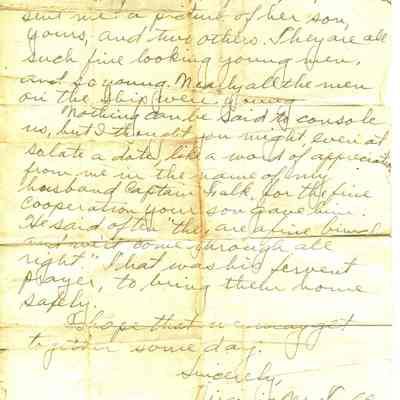 sent me a picture of her son,
yours, and two others. They are all
such fine looking young men,
and so young. Nearly all the men
on the ship were young
Nothing can be said to console
us, but I thought you might, even at
so late a date, like a word of appreciation
from me in the name of my
husband Captain Falk, for the fine
cooperation your son gave him.
He said often "they are a fine bunch
and we'll come through all
right." That was his fervent
prayer, to bring them home
safely.
I hope that we may get
together some day.
Sincerely,